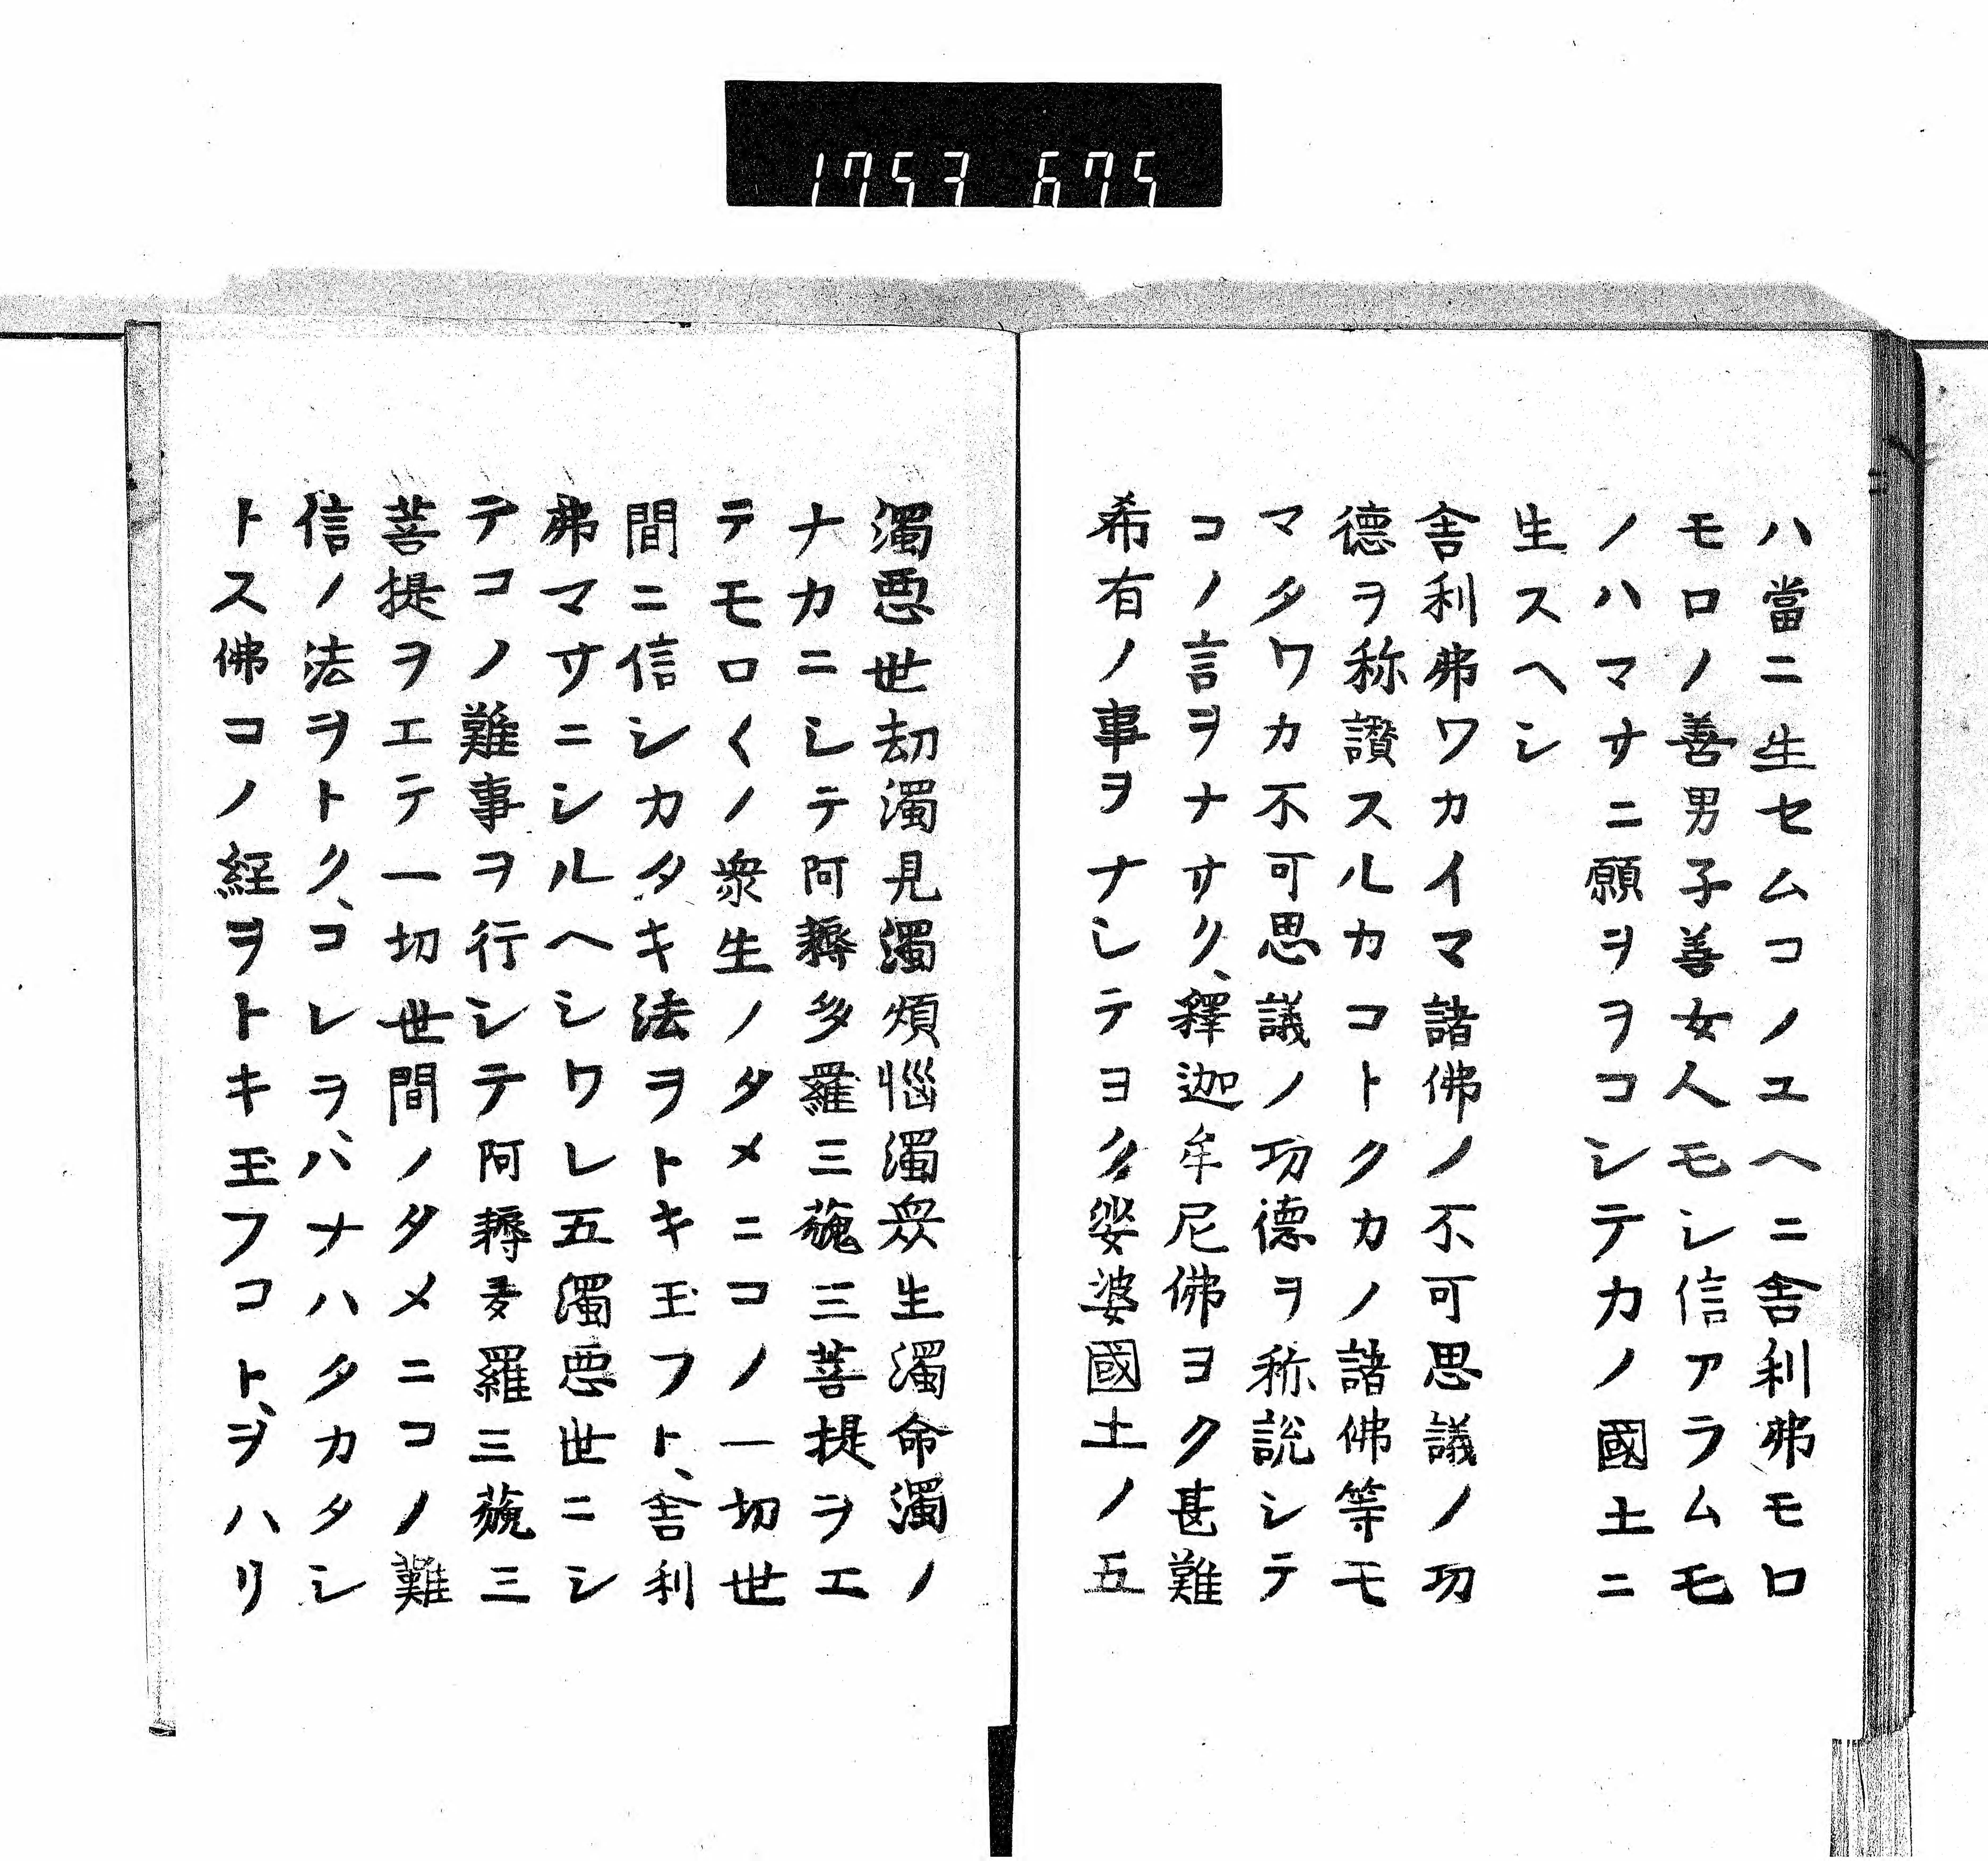 1753 675
ハ當ニ生セムコノユヘニ舍利弗モロ
モロノ善男子善女人モシ信アラムモ
ノハマサニ願ヲヲコシテカノ國土ニ
生スヘシ
舍利弗ワカイマ諸佛ノ不可思議ノ功
德ヲ称讚スルカコトクカノ諸佛等モ
マタワカ不可思議ノ功德ヲ称說シテ
コノ言ヲナサク、釋迦牟尼佛ヨク甚難
希有ノ事ヲナシテヨク娑婆國土ノ五
濁惡世劫濁見濁煩惱濁衆生濁命濁ノ
ナカニシテ阿耨多羅三藐三菩提ヲエ
テモロ〱ノ衆生ノタメニコノ一切世
間ニ信シカタキ法ヲトキ玉フト、舍利
弗マサニシルヘシワレ五濁惡世ニシ
テコノ難事ヲ行シテ阿耨多羅三藐三
菩提ヲエテ一切世間ノタメニコノ難
信ノ法ヲトク、コレヲハ、ナハタカタシ
トス佛コノ経ヲトキ玉フコト、ヲハリ